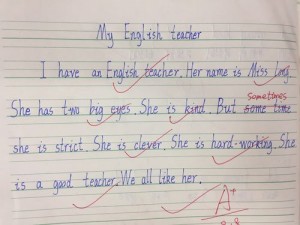 My English teacher
I have an English teacher. Her name is Miss Long.
sometimes
She has two big eyes. She is kind. But some time
she is strict. She is clever. She is hard-working. She
is a good teacher. We all like her.
A+